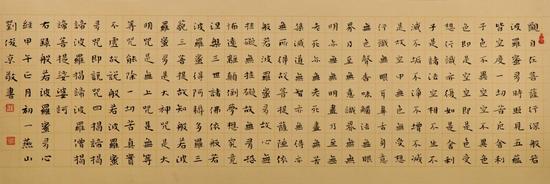 觀自在菩薩行深般若
波羅蜜多時照見五蘊
皆空度一切苦厄舍利
子色不異空空不異色
色即是空空即是色受
想行識亦復如是舍利
子是諸法空相不生不
滅不垢不淨不增不減
是故空中無色無受想
行識無眼耳鼻舌身意
無色聲香味觸法無眼
界乃至無意識界無無
明亦無無明盡乃至無
老死亦無老死盡無苦
集滅道無智亦無得以
無所得故菩提薩埵依
般若波羅蜜多故心無
罣礙無罣礙故無有恐
怖遠離顛倒夢想究竟
涅槃三世諸佛依般若
波羅蜜多故得阿耨多羅三
藐三菩提故知般若波
羅蜜多是大神咒是大
明咒是無上咒是無等
等咒能除一切苦真實
不虛故說般若波羅蜜
多咒即說咒曰揭諦揭
諦波羅揭諦波羅僧揭
諦菩提娑婆訶
右錄般若波羅蜜多心
經甲午正月初一燕山
劉俊京敬書